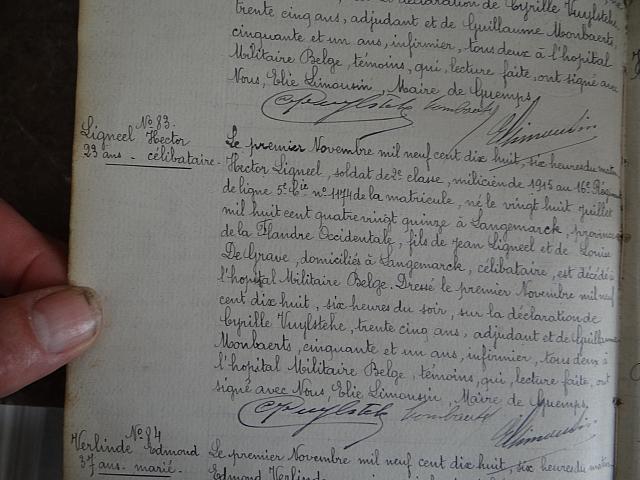 déclaration de Cyrille Vuylsteke,
trente cinq ans, adjudant et de Guillaume Monbaerts,
cinquante et un ans, infirmier, tous deux à l'hopital
Militaire Belge, témoins, qui, lecture faite, ont signé avec
Nous, Elie Limousin, Maire de Guemps.
C. Vuylsteke Limousin
N° 83.
Ligneel Hector
23 ans - célibataire.
Le premier Novembre mil neuf cent dix huit, six heures du matin
Hector Ligneel, soldat de 2e classe, milicien de 1915 au 16e Régiment
de ligne 5e Cie n° 1174 de la matricule, né le vingt huit juillet
mil huit cent quatre vingt quinze à Langemarck, province
de la Flandre Occidentale, fils de Jean Ligneel et de Louise
De Grave, domiciliés à Langemarck, célibataire, est décédé à
l'hopital Militaire Belge. Dressé le premier Novembre mil neuf
cent dix huit, six heures du soir, sur la déclaration de
Cyrille Vuylsteke, trente cinq ans, adjudant et de Guillaume
Monbaerts, cinquante et un ans, infirmier, tous deux à
l'hopital Militaire Belge, témoins, qui, lecture faite, ont
signé avec Nous, Elie Limousin, Maire de Guemps.
C. Vuylsteke Limousin
N° 84
Verlinde Edmond
37 ans - marié.
Le premier Novembre mil neuf cent dix huit, six heures du matin
Edmond Verlinde